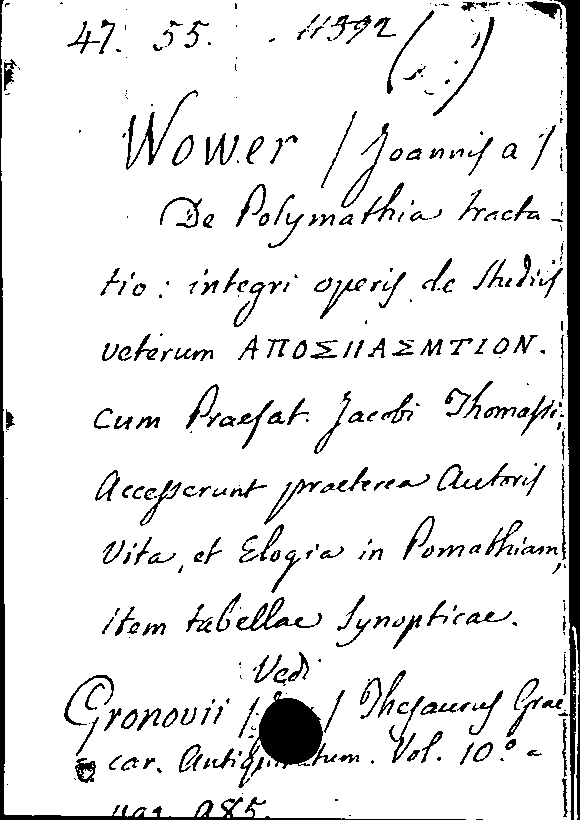 47. 55. . 11392 (
Wower / Joannis a /
De Polymathia tracta-
tio: integri operis de Studiis
veterum ΑΠΟΣΠΑΣΜΤΙΟΝ.
cum Praefat. Jacobi Thomasii;
Accesserunt praeterea Autoris
Vita, et Elogia in Pomathiam,
item tabellae Synopticae.
Vedi
Gronovii / / Thesaurus Grae-
car. Vol. 10.° a
pag. 985.